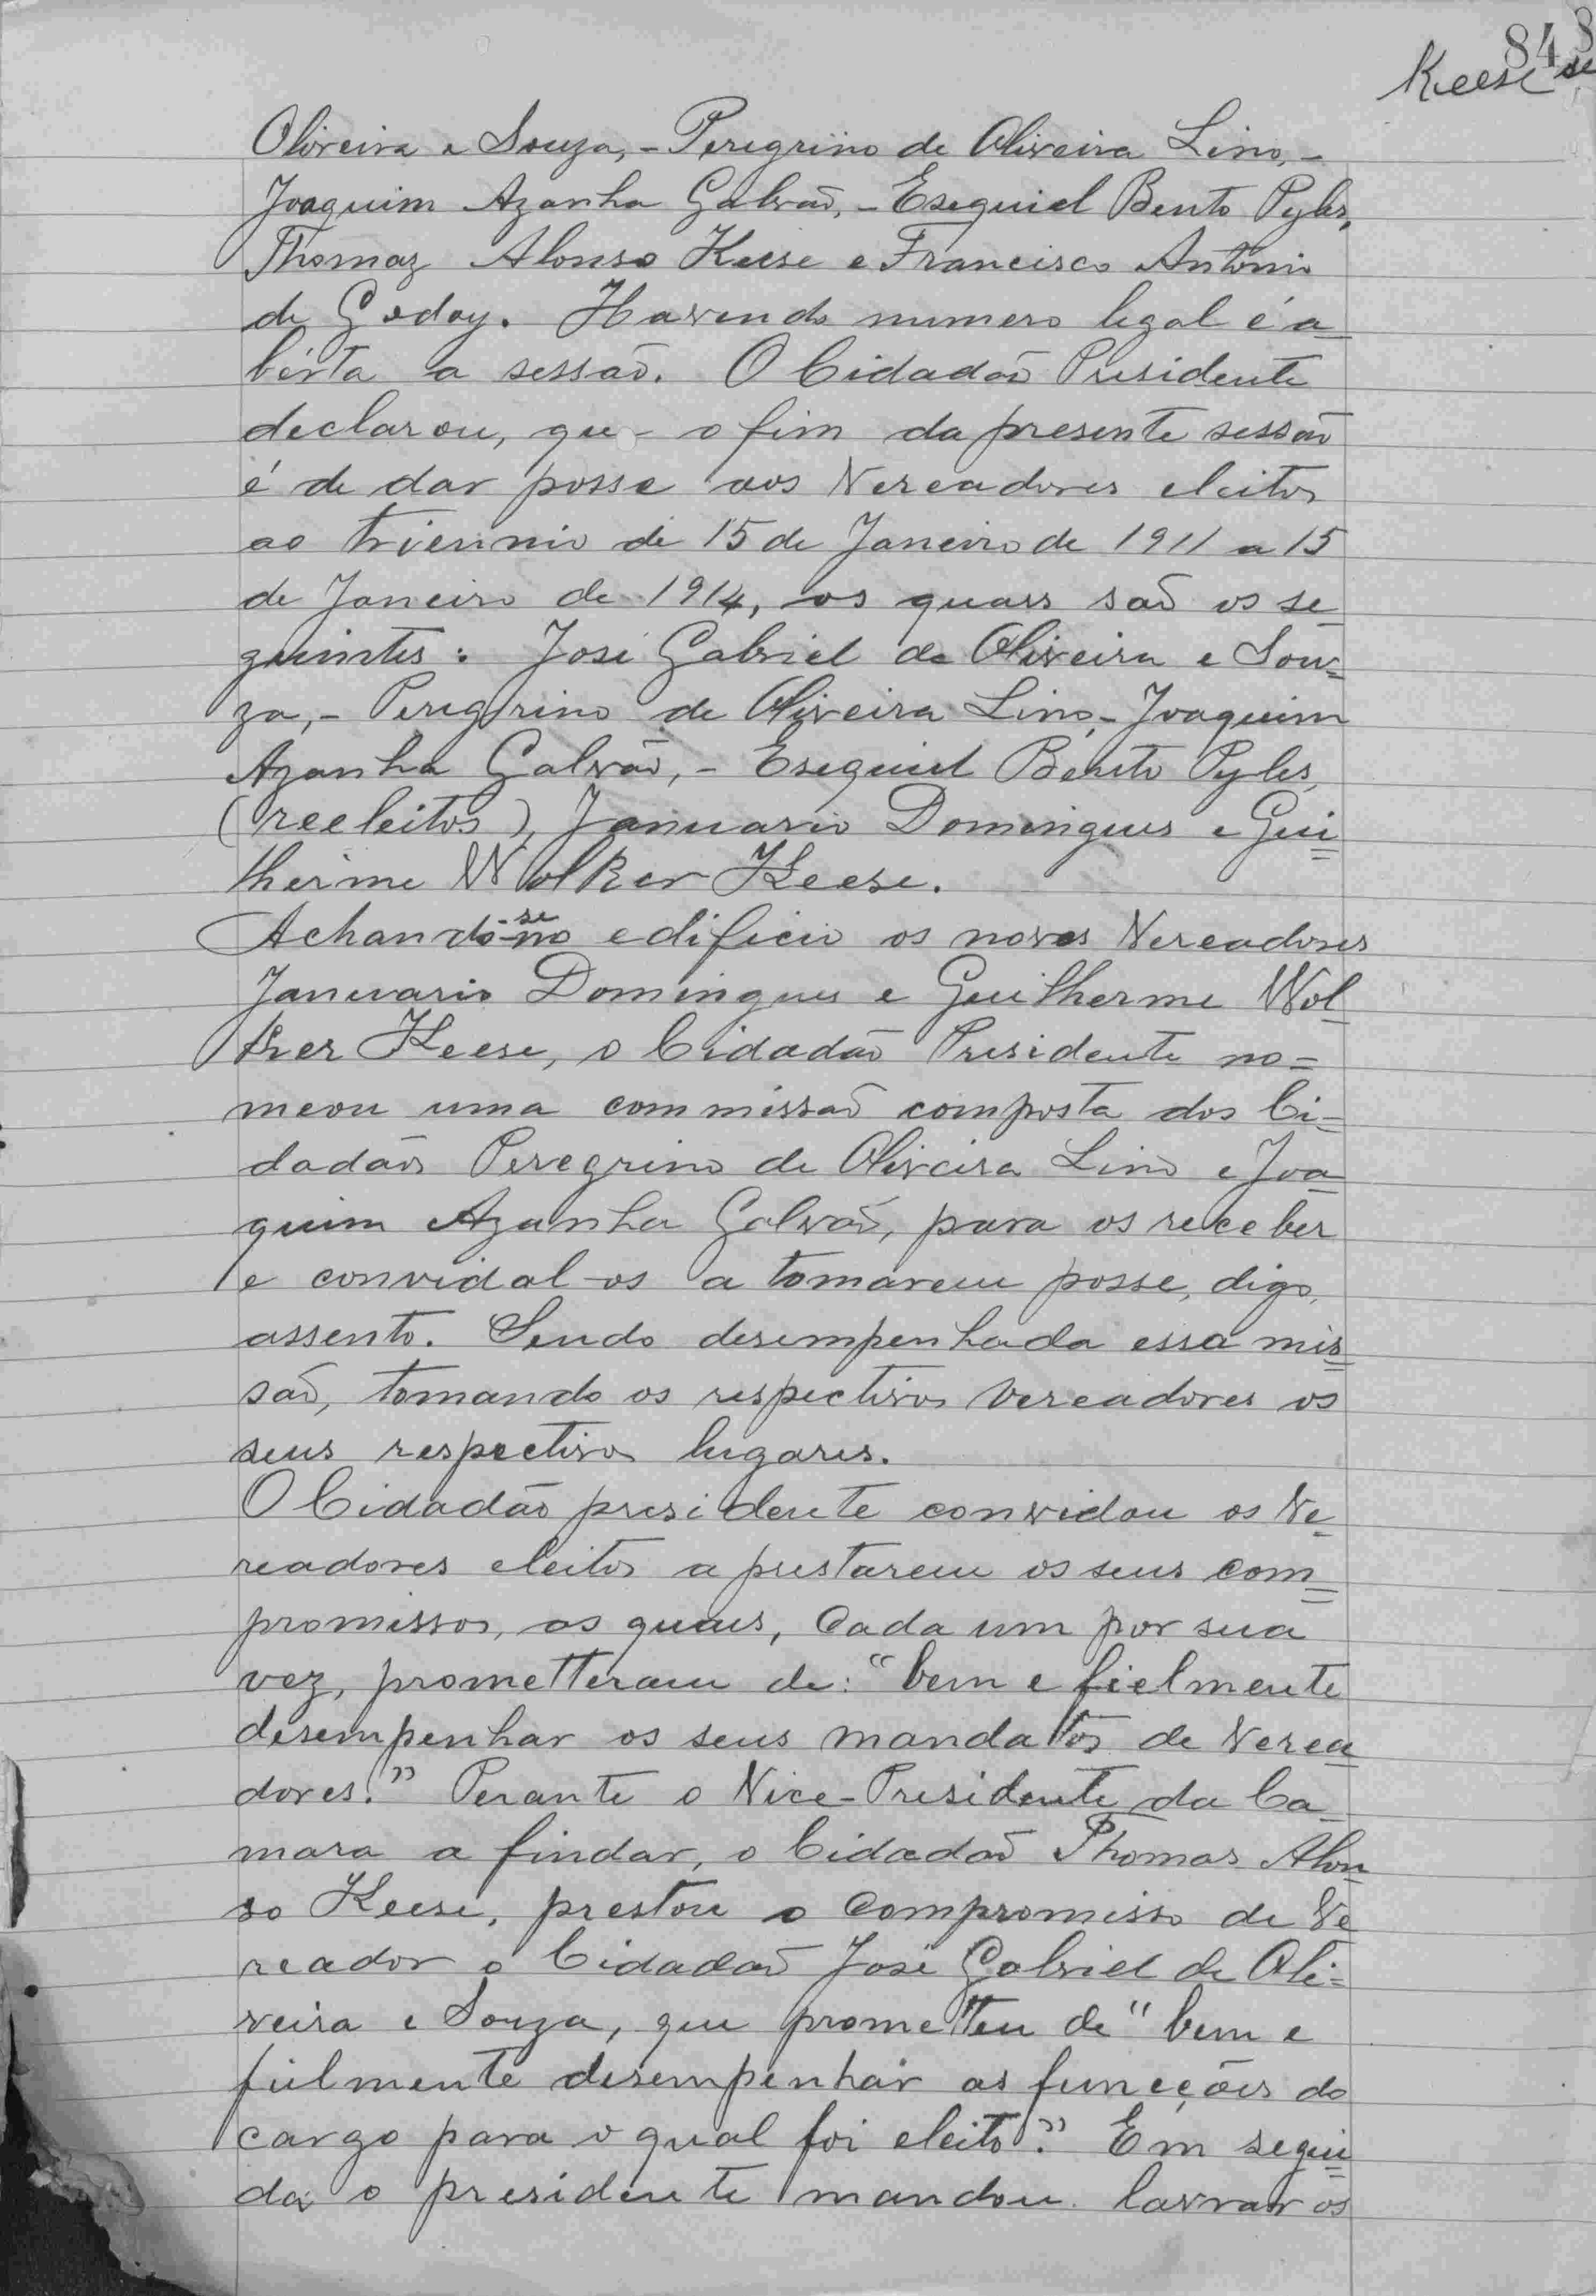 843
Keese
Oliveira e Souza, - Peregrino de Oliveira Lino, -
Joaquim Azanha Galvão, - Esequiel Bento Pyles,
Thomaz Alonso Keese e Francisco Antonio
de Godoy. Havendo numero legal é a
bérta a sessão. O Cidadão Presidente
declarou, que o fim da presente sessão
é de dar posse aos Vereadores eleitos
ao triennio de 15 de Janeiro de 1911 a 15
de Janeiro de 1914, os quaes são os se
guintes: José Gabriel de Oliveira e Sou=
za, - Peregrino de Oliveira Lino, - Joaquim
Azanha Galvão, - Esequiel Bento Pyles,
(reeleitos), Januario Domingues e Gui
lherme Wolker Keese.
Achando-se no edificio os novos Vereadores
Januario Domingues e Guilherme Wol
ker Keese, o Cidadão Presidente no=
meou uma commissão composta dos Ci=
dadãos Peregrino de Oliveira Lino e Joa
quim Azanha Galvão, para os receber
e convidal-os a tomarem posse, digo,
assento. Sendo desempenhada essa mis
são, tomando os respectivos vereadores os
seus respectivos lugares.
O Cidadão presidente convidou os Ve
readores eleitos a prestarem os seus com
promissos, os quaes, cada um por sua
vez, prometteram de: "bem e fielmente
desempenhar os seus mandatos de Verea
dores." Perante o Vice-Presidente da Ca
mara a findar, o Cidadão Thomas Alon
so Keese, prestou o compromisso de Ve
reador o Cidadão José Gabriel de Oli=
veira e Souza, que prometteu de "bem e
fielmente desempenhar as funcções do
cargo para o qual foi eleito." Em segui
da o presidente mandou lavrar os